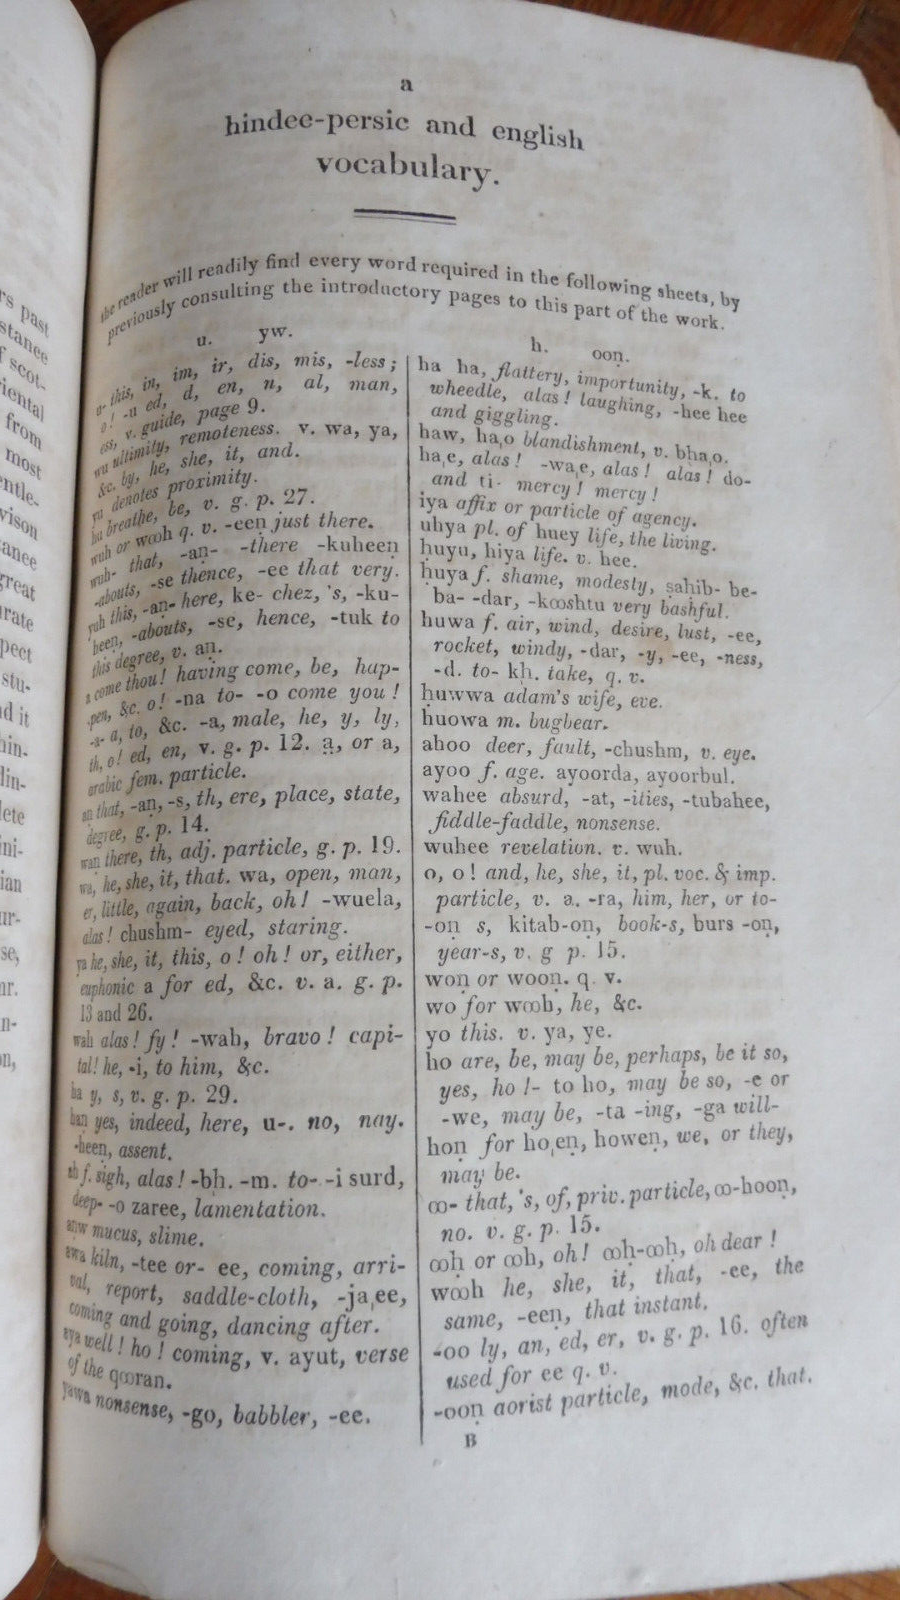 a
hindee-persic and english
vocabulary.
the reader will readily find every word required in the following sheets, by
previously consulting the introductory pages to this part of the work.
u. yw.
u- this, in, im, ir, dis, mis, -less;
o! -u ed, d, en, n, al, man,
ess, v. guide, page 9.
wu ultimity, remoteness. v. wa, ya,
&c. by, he, she, it, and.
yu denotes proximity.
hu breathe, be, v. g. p. 27.
wuh or wooh q. v. -een just there.
wuh- that, -an- -there -kuheen
-abouts, -se thence, -ee that very.
yuh this, -an- here, ke- chez, 's, -ku-
heen, -abouts, -se, hence, -tuk to
this degree, v. an.
a come thou! having come, be, hap-
pen, &c. o! -na to- -o come you!
-a- a, to, &c. -a, male, he, y, ly,
th, o! ed, en, v. g. p. 12. a, or a,
arabic fem. particle.
an that, -an, -s, th, ere, place, state,
degree, g. p. 14.
wan there, th, adj. particle, g. p. 19.
wa, he, she, it, that. wa, open, man,
er, little, again, back, oh! -wuela,
alas! chushm- eyed, staring.
ya he, she, it, this, o! oh! or, either,
euphonic a for ed, &c. v. a. g. p.
13 and 26.
wah alas! fy! -wah, bravo! capi-
tal! he, -i, to him, &c.
ha y, s, v. g. p. 29.
han yes, indeed, here, u-. no, nay.
-heen, assent.
ah f. sigh, alas! -bh. -m. to- -i surd,
deep- -o zaree, lamentation.
anw mucus, slime.
awa kiln, -tee or- ee, coming, arri-
val, report, saddle-cloth, -ja,ee,
coming and going, dancing after.
aya well! ho! coming, v. ayut, verse
of the qooran.
yawa nonsense, -go, babbler, -ee.
h. oon.
ha ha, flattery, importunity, -k. to
wheedle, alas! laughing, -hee hee
and giggling.
haw, ha,o blandishment, v. bha,o.
ha,e, alas! -wa,e, alas! alas! do-
and ti- mercy! mercy!
iya affix or particle of agency.
uhya pl. of huey life, the living.
huyu, hiya life. v. hee.
huya f. shame, modesty, sahib- be-
ba- -dar, -kooshtu very bashful.
huwa f. air, wind, desire, lust, -ee,
rocket, windy, -dar, -y, -ee, -ness,
-d. to- kh. take, q. v.
huwwa adam's wife, eve.
huowa m. bugbear.
ahoo deer, fault, -chushm, v. eye.
ayoo f. age. ayoorda, ayoorbul.
wahee absurd, -at, -ities, -tubahee,
fiddle-faddle, nonsense.
wuhee revelation. v. wuh.
o, o! and, he, she, it, pl. voc. & imp.
particle, v. a. -ra, him, her, or to-
-on s, kitab-on, book-s, burs -on,
year-s, v. g p. 15.
won or woon. q. v.
wo for wooh, he, &c.
yo this. v. ya, ye.
ho are, be, may be, perhaps, be it so,
yes, ho!- to ho, may be so, -e or
-we, may be, -ta -ing, -ga will-
hon for ho,en, howen, we, or they,
may be.
oo- that, 's, of, priv. particle, oo-hoon,
no. v. g. p. 15.
ooh or ooh, oh! ooh-ooh, oh dear!
wooh he, she, it, that, -ee, the
same, -een, that instant.
-oo ly, an, ed, er, v. g. p. 16. often
used for ee q. v.
-oon aorist particle, mode, &c. that.
B
's past
stance
f scot-
riental
from
most
entle-
vison
great